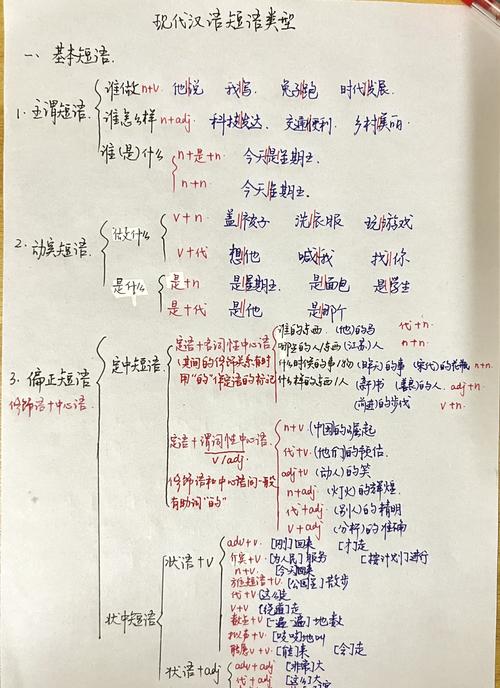 现代汉语短语类型
一、基本短语.
1.主谓短语.
谁做 n+v 他说 我写. 兔子跑 时代发展.
谁怎么样 n+adj. 科技发达. 交通便利. 乡村美丽.
谁(是)什么
n+是+n 今天是星期五.
n+n 今天星期五.
2.动宾短语.
做什么
v+n. 盖房子 洗衣服 玩游戏
v+代 想他 喊我 找你
是什么
是+n 是星期五. 是面包 是学生
是+代 是他 是那个
3.偏正短语
修饰语+中心语.
定中短语.
定语+名词性中心语
(其间的修饰关系有时
用"的"作定语的标记)
谁的东西. (他)的书 代+n.
哪里的人/东西 (江苏)人 n+n.
什么时候的事/物 (昨天)的事 (宋代)的花瓶 n+n.
什么样的东西/人 (新)书 (善良)的人. adj+n.
(前进)的步伐 v+n.
定语+谓词性中心语.
v/adj.
修饰语和中心语间一般
有助词"的"
n+v (中国)的崛起
代+v (他们)的预估
adj+v (动人)的笑
n+adj (灯火)的辉煌
代+adj (别人)的精明
v+adj (分析)的准确
状中短语
状语+v
adv+v. [刚]回来 [才]走
介宾+v [为人民]服务 [按计划]进行
n+v [今天]回来
方位短语+v [公园里]散步
代+v [这么]走
v+v [绕道]走
数量+v [一遍一遍]地数
拟声+v. [吱吱]地叫
能愿v+v [能]来 [会]走
状语+adj
adv+adj [非常]大
代+adj [这么]大